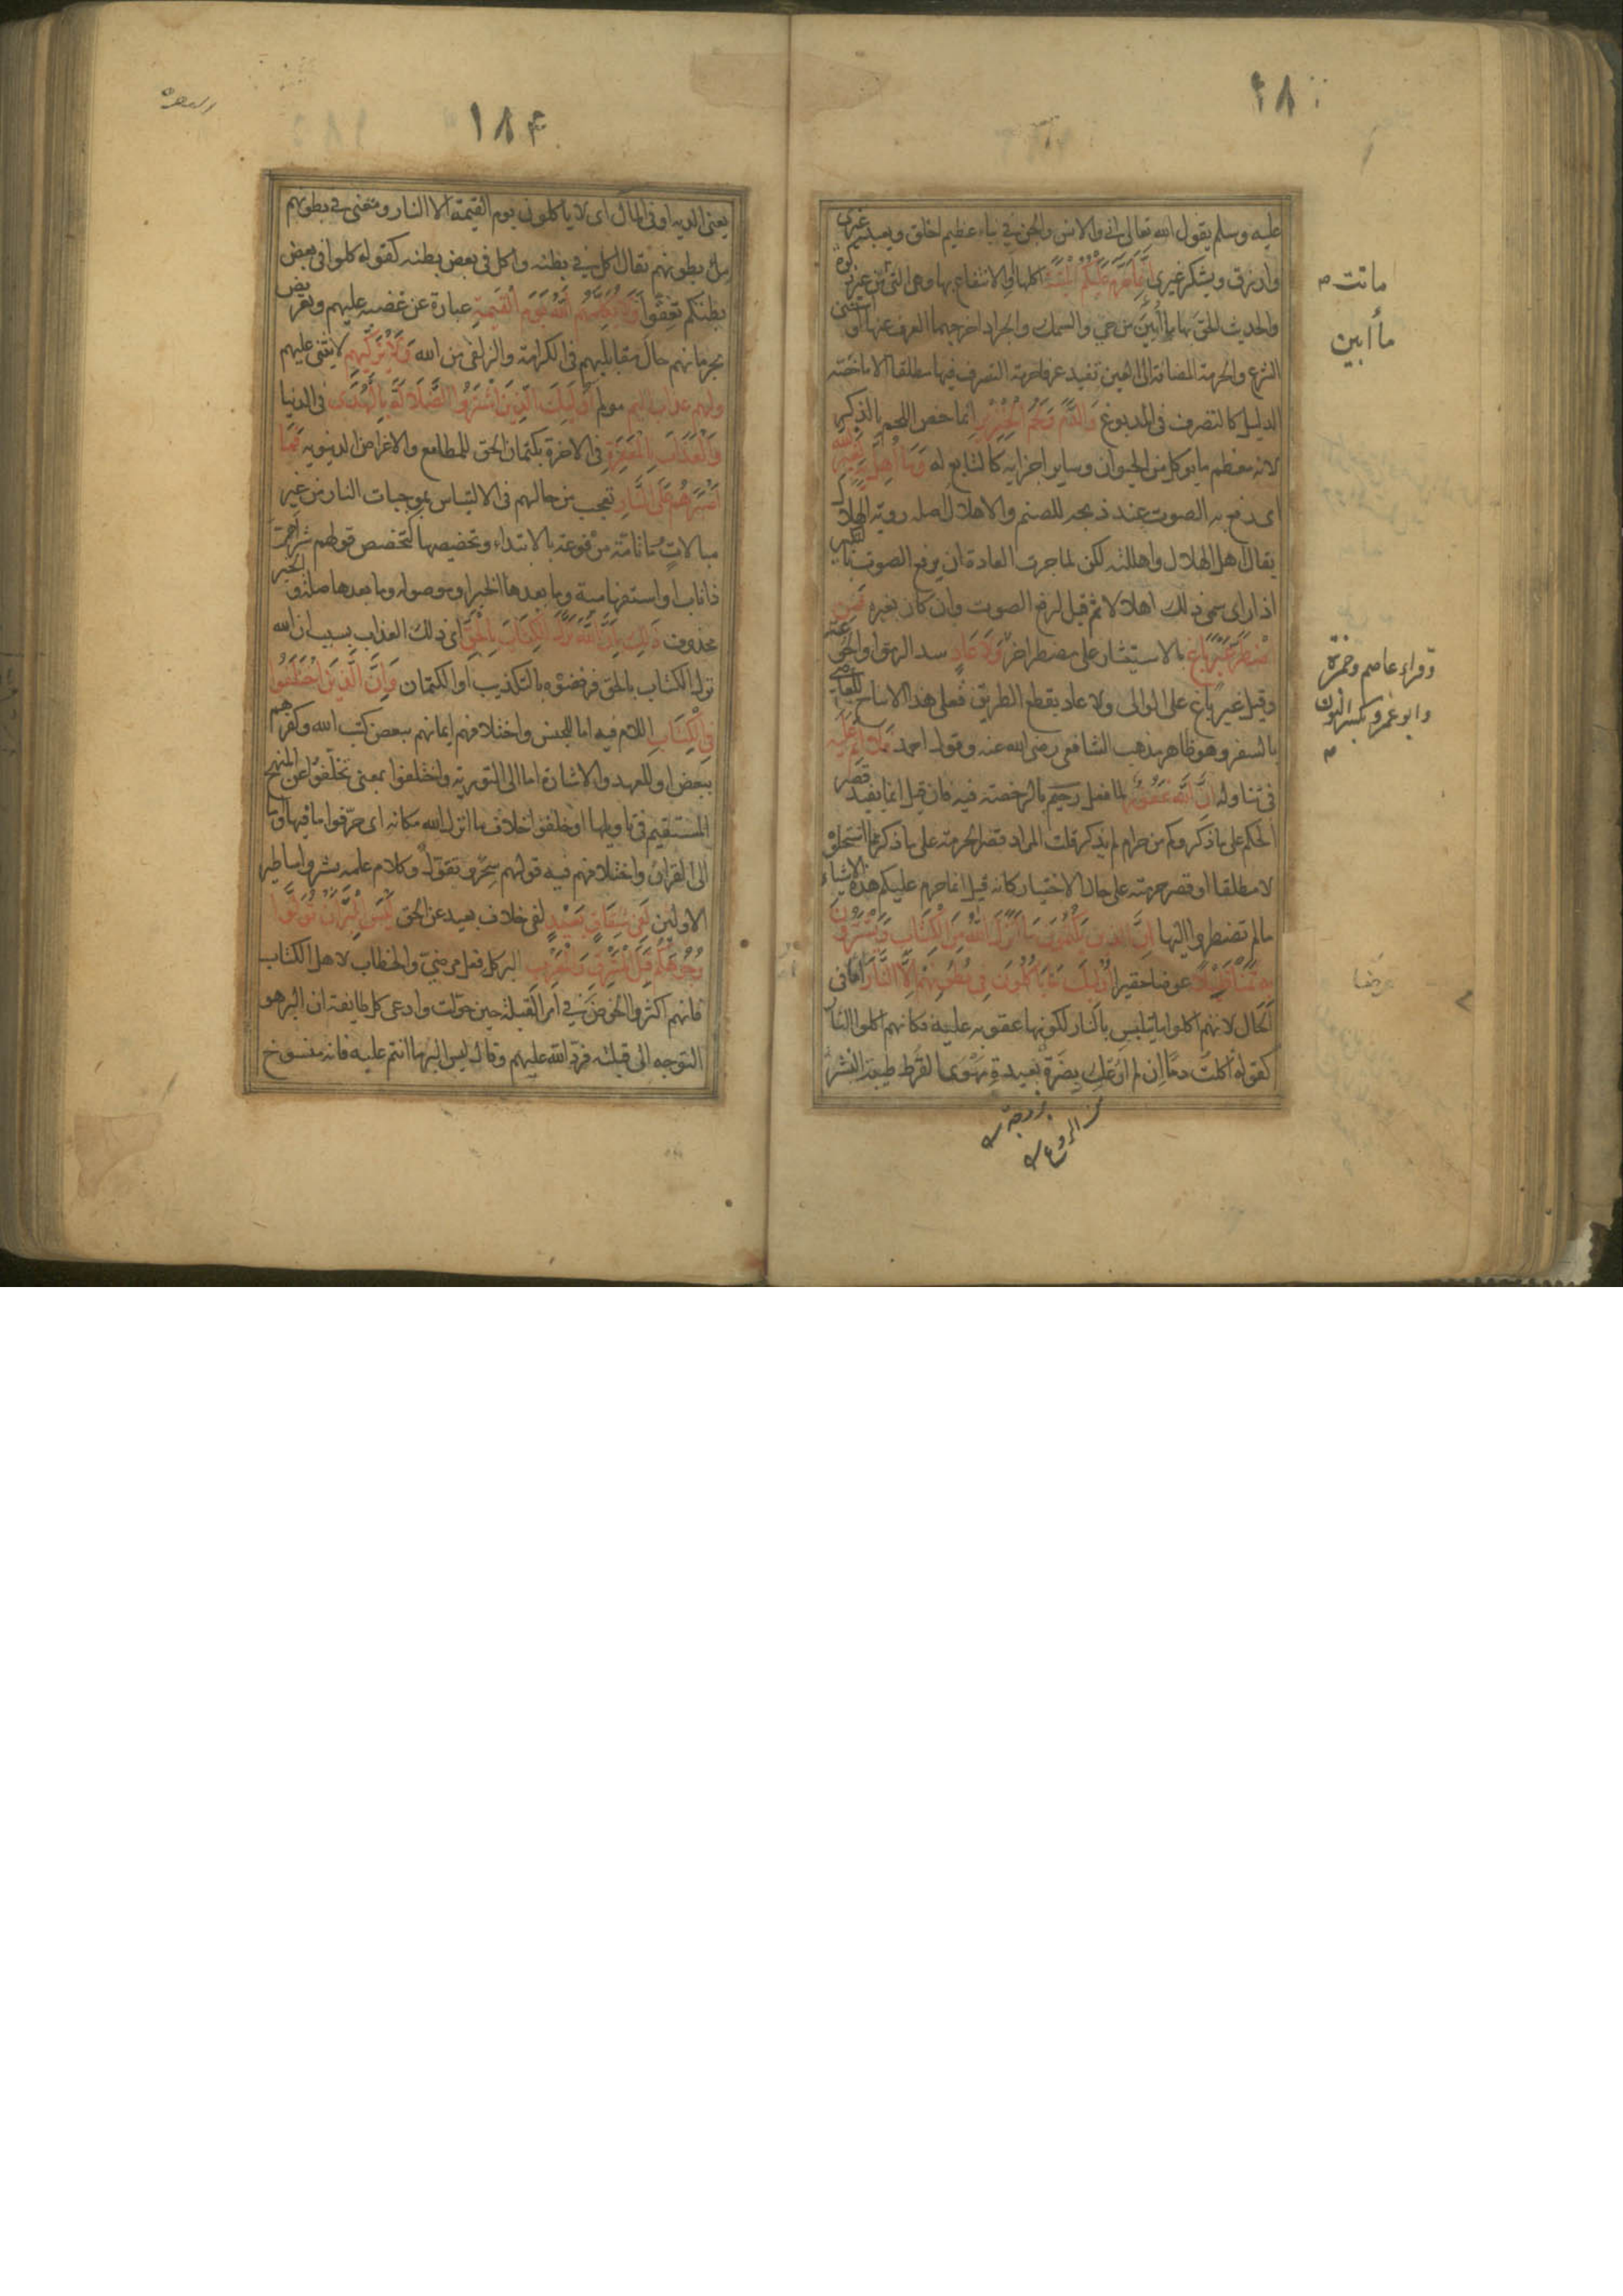 عليه وسلم يقول الله تعالى انى والانس والجن فى نباء عظيم اخلق ويعبد غيرى
وارزق ويشكر غيرى اِنَّمَا حَرَّمَ عَلَيْكُمُ الْمَيْتَةَ اكلها والانتفاع بها وهى التى من غير ذكوة
والحديث الحق بها ما اُبِيْنَ من حي والسمك والجراد اخرجهما العرف عنها او استثنى
الشرع والحرمة المضافة الى العين تفيد عرفا حرمة التصرف فيها مطلقا الا ما خصّه
الدليل كالتصرف فى المدبوغ وَالدَّمَ وَلَحْمَ الْخِنْزِيْرِ انما خص اللحم بالذكر
لانه معظم ما يوكل من الحيوان وساير اجزايه كالتابع له وَمَا اُهِلَّ بِهِ لِغَيْرِ اللهِ
اى رفع به الصوت عند ذبحه للصنم والاهلال اصله روية الهلال
يقال اهل الهلال واهللته لكن لما جرت العادة ان يرفع الصوت بالتكبير
اذا راى سمى ذلك اهلالا ثم قيل لرفع الصوت وان كان بغيره فَمَنِ
اضْطُرَّ غَيْرَ بَاغٍ بالاستيثار على مضطر اخر وَلَا عَادٍ سد الرمق او الجوعة
وقيل غير باغ على الوالى ولا عاد بقطع الطريق فعلى هذا لا يباح للعاصى
بالسفر وهو ظاهر مذهب الشافعى رضى الله عنه وقول احمد فَلَا اِثْمَ عَلَيْهِ
فى تناوله اِنَّ اللهَ غَفُوْرٌ لما فعل رَحِيْمٌ بالرخصة فيه فان قيل انما يفيد قصر
الحكم على ما ذكر وكم من حرام لم يذكر قلت المراد قصر الحرمة على ما ذكر مما استحلوه
لا مطلقا او قصر حرمته على حال الاختيار كانه قيل انما حرم عليكم هذه الاشياء
ما لم تضطروا اليها اِنَّ الَّذِيْنَ يَكْتُمُوْنَ مَا اَنْزَلَ اللهُ مِنَ الْكِتَابِ وَيَشْتَرُوْنَ
بِهِ ثَمَنًا قَلِيْلًا عوضا حقيرا اُولٰئِكَ مَا يَاْكُلُوْنَ فِى بُطُوْنِهِمْ اِلَّا النَّارَ اما فى
الحال لانهم اكلوا ما يتلبس بالنار لكونها عقوبة عليه فكانهم اكلوا النار
كقوله اكلت دمًا ان لم ارعك بضرة بعيدة مهوى القرط طيبة النشر
ما تت
ما أبين
وقراء عاصم وحمزة
وابو عمرو بكسر النون
عوضا
١٨٤
يعنى الدية او فى المآل اى لا ياكلون يوم القيمة الا النار ومعنى فى بطونهم
مل بطونهم يقال اكل فى بطنه واكل فى بعض بطنه كقوله كلوا فى بعض
بطنكم تعفوا وَلَا يُكَلِّمُهُمُ اللهُ يَوْمَ الْقِيٰمَةِ عبارة عن غضبه عليهم وتعريض
بحرمانهم حال مقابليهم فى الكرامة والزلفى من الله وَلَا يُزَكِّيْهِمْ لا يثنى عليهم
ولهم عذاب اليم مولم اُولٰئِكَ الَّذِيْنَ اشْتَرَوُا الضَّلَالَةَ بِالْهُدٰى فى الدنيا
وَالْعَذَابَ بِالْمَغْفِرَةِ فى الاخرة بكتمان الحق للمطامع والاغراض الدنيويه فَمَا
اَصْبَرَهُمْ عَلَى النَّارِ تعجب من حالهم فى الالتباس بموجبات النار من غير
مبالاتٍ وما تامّة مرفوعة بالابتداء وتخصيصها كتخصيص قولهم شر اهرّ
ذا ناب او استفهامية وما بعدها الخبر او موصولة وما بعدها صلة والخبر
محذوف ذٰلِكَ بِاَنَّ اللهَ نَزَّلَ الْكِتَابَ بِالْحَقِّ اى ذلك العذاب بسبب ان الله
نزل الكتاب بالحق فرفضوه بالتكذيب او الكتمان وَاِنَّ الَّذِيْنَ اخْتَلَفُوْا
فِى الْكِتَابِ اللام فيه اما للجنس واختلافهم ايمانهم ببعض كتب الله وكفرهم
ببعض او للعهد والاشارة اما الى التورية واختلفوا بمعنى تخلّفوا عن المنهج
المستقيم فى تاويلها او خلفوا خلاف ما انزل الله مكانه اى حرّفوا ما فيها واما
الى القران واختلافهم فيه قولهم سِحْر وتقوّل وكلام علمه بشر واساطير
الاولين لَفِى شِقَاقٍ بَعِيْدٍ لفى خلاف بعيد عن الحق لَيْسَ الْبِرَّ اَنْ تُوَلُّوْا
وُجُوْهَكُمْ قِبَلَ الْمَشْرِقِ وَالْمَغْرِبِ البر كل فعل مرضىّ والخطاب لاهل الكتاب
فانهم اكثروا الخوض فى امر القبلة حين حوّلت وادعى كل طايفة ان البر هو
التوجه الى قبلته فرد الله عليهم وقال ليس البر ما انتم عليه فانه منسوخ